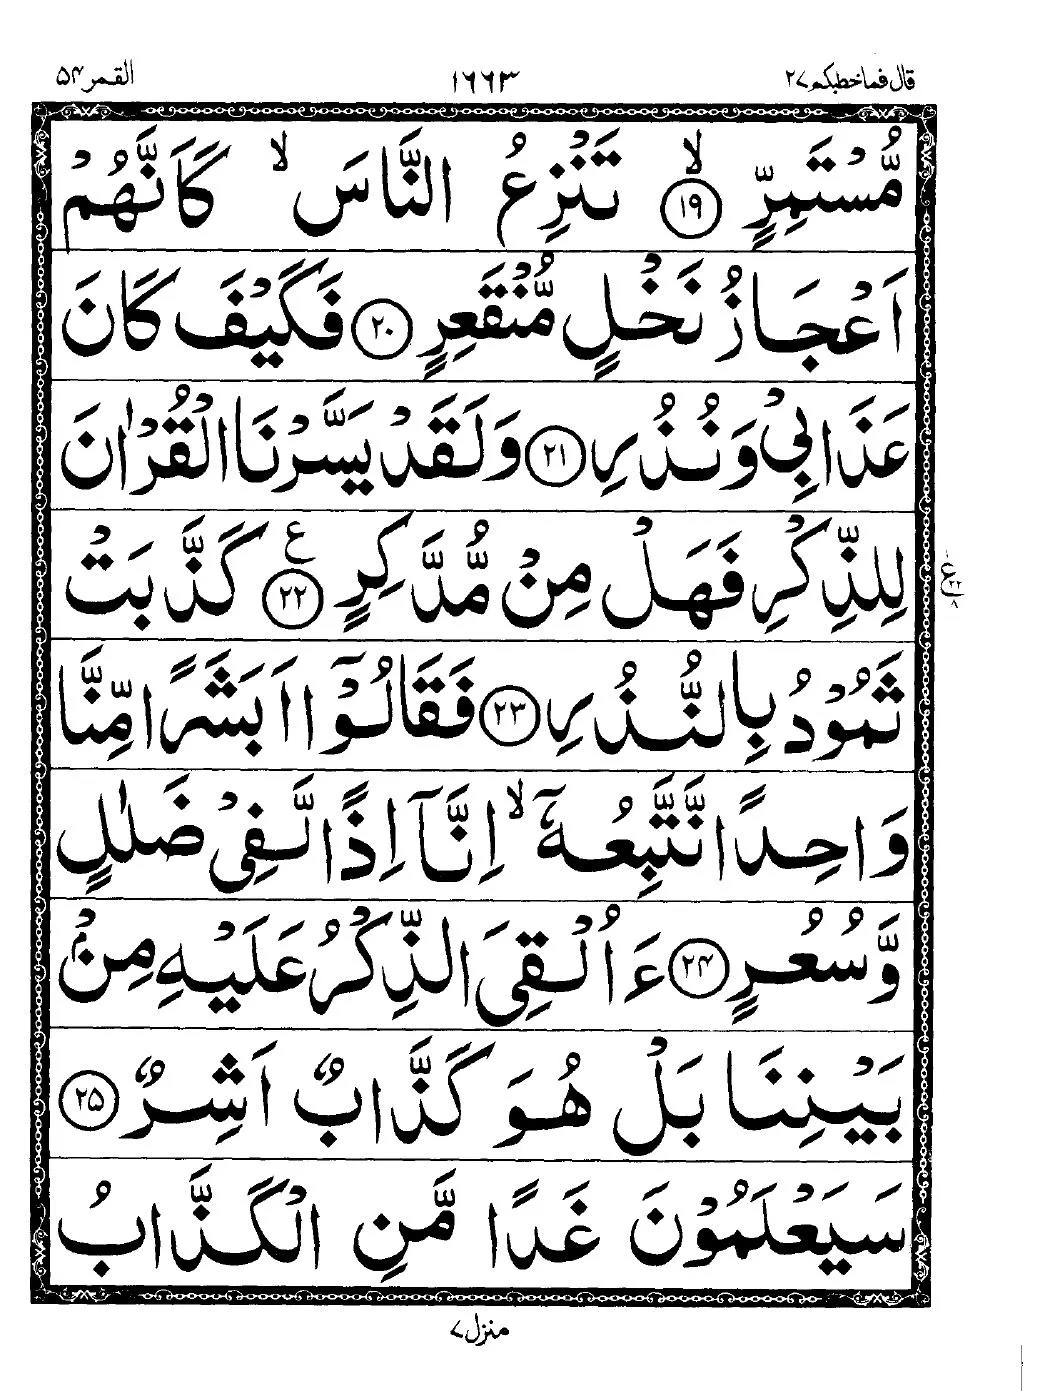 قال فما خطبكم ۲۷ ۱۶۶۳ القمر ۵۴
مُّسۡتَمِرٍّ ۙ‏ ﴿۱۹﴾ تَنۡزِعُ النَّاسَۙ كَاَنَّهُمۡ
اَعۡجَازُ نَخۡلٍ مُّنۡقَعِرٍ‏ ﴿۲۰﴾ فَكَيۡفَ كَانَ
عَذَابِىۡ وَنُذُرِ‏ ﴿۲۱﴾ وَلَقَدۡ يَسَّرۡنَا الۡقُرۡاٰنَ
لِلذِّكۡرِ فَهَلۡ مِنۡ مُّدَّكِرٍ ﴿۲۲﴾ ع كَذَّبَتۡ
ثَمُوۡدُ بِالنُّذُرِ‏ ﴿۲۳﴾ فَقَالُوۡۤا اَبَشَرًا مِّنَّا
وَاحِدًا نَّتَّبِعُهٗۤ ۙ اِنَّاۤ اِذًا لَّفِىۡ ضَلٰلٍ
وَّسُعُرٍ‏ ﴿۲۴﴾ ءَاُلۡقِىَ الذِّكۡرُ عَلَيۡهِ مِنۡۢ
بَيۡنِنَا بَلۡ هُوَ كَذَّابٌ اَشِرٌ‏ ﴿۲۵﴾
سَيَعۡلَمُوۡنَ غَدًا مَّنِ الۡكَذَّابُ
ع ۲۲ ۸
منزل ۷